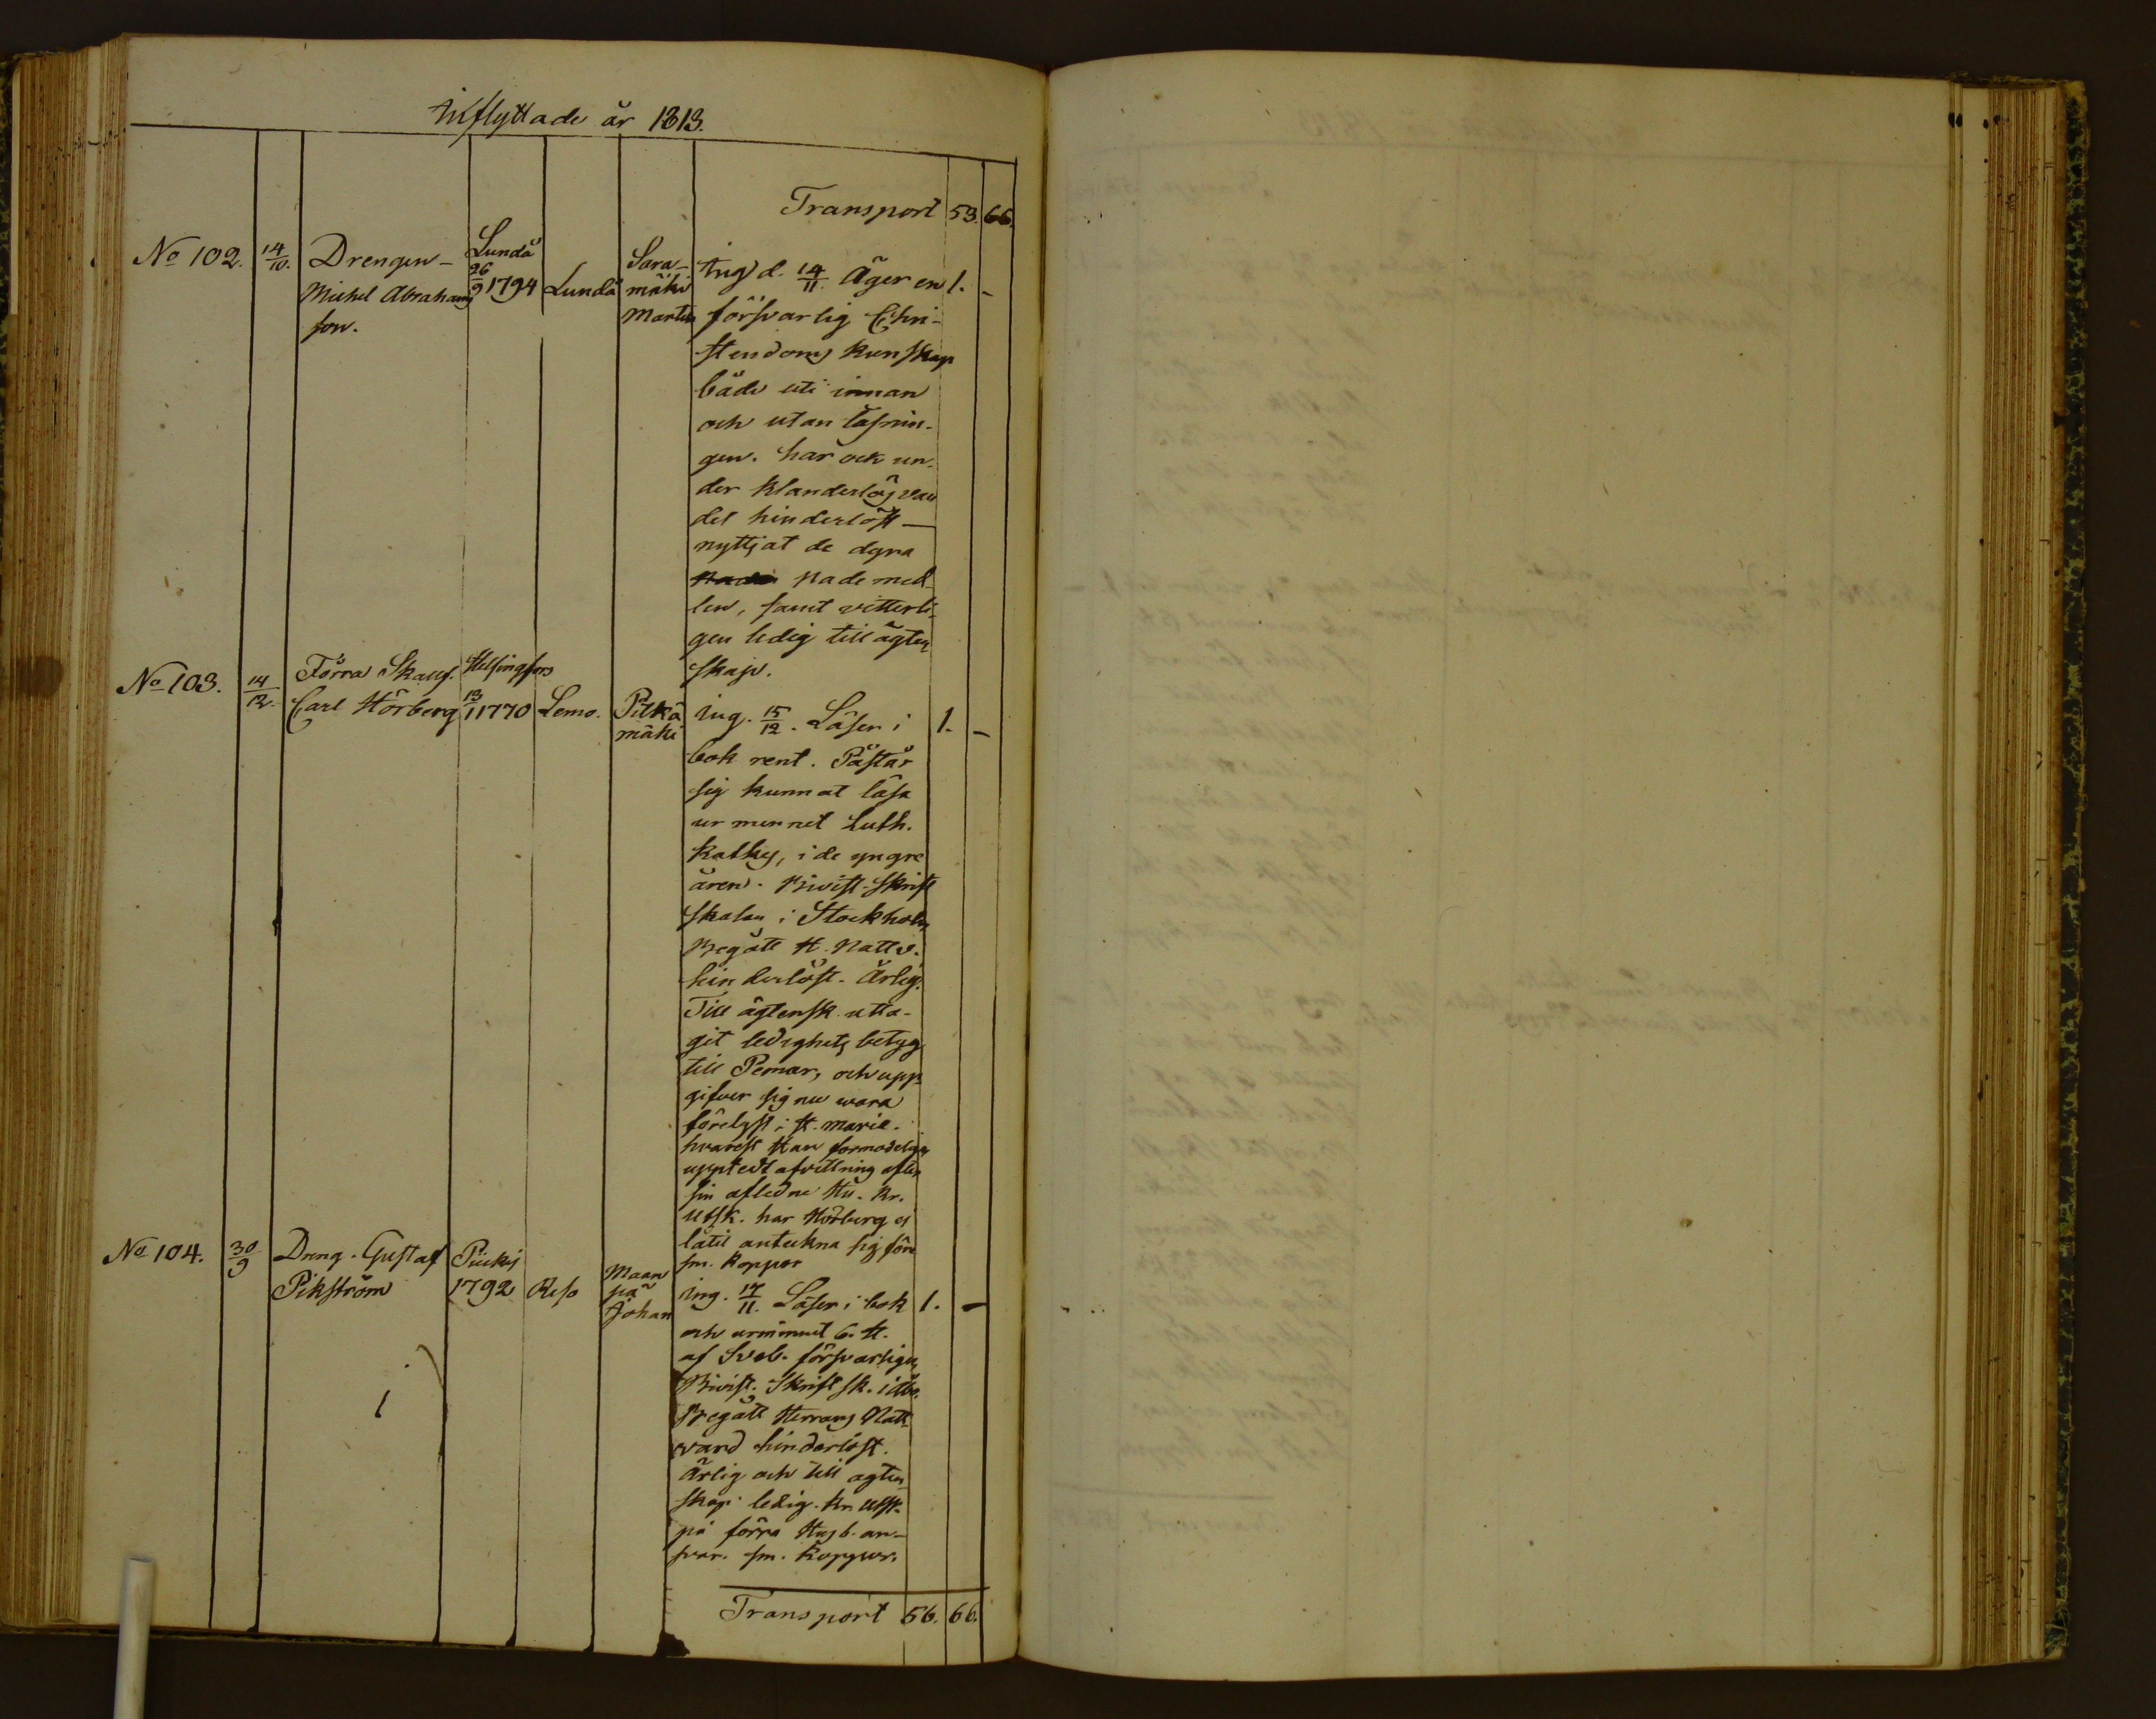 Inflyttade år 1813.
Transport 53. 66.
No 102. 14/10. Drengen Michel Abrahams son. Lundå 26/9 1794 Lundå Saramäki Martin
Ing. d. 14/11. Äger en 1. -
försvarlig Chri-
stendoms kunskap
både uti innan
och utan läsnin-
gen. har ock un-
der klanderlös van
del hinderlöst
nyttjat de dyra
nade med-
len, samt vitterli-
gen ledig till ägten
skap.
No 103. 14/12. Förra Skarf. Carl Hörberg Helsingfors 13/1 1770 Lemo. Pitkä mäki
ing. 15/12. Läser i 1. -
bok rent. Påstår
sig kunnat läsa
ur minnet Luth.
Katkes, i de yngre
åren. Bivist. Skrift
skolan i Stockholm
Begått H. Nattv.
hinderlöst. Ärlig.
Till ägtensk. utta-
git ledighets betyg
till Pemar, och upp-
gifver sig nu wara
förelyst i St. Marie.
hvarest Han formodeligen
uppteдt afvittring efter
sin aflednе Hu. Kr.
Utsk. har Hörberg ej
låtit anteckna sig före
sm. koppor
No 104. 30/9 Dreng. Gustaf Pikström Piikis 1792 Reso Maanpää Johan
ing. 17/11. Läser i bok 1. -
och urminnet 6. st.
af Sveb. försvarligen
Bivist. Skriftsk. i Åbo.
Begått Herrans Natt
vard hinderlöst.
Ärlig och till ägten
skap ledig. Kr. Utsk.
på förra Husb. an-
svar. sm. Koppor.
Transport 56. 66.